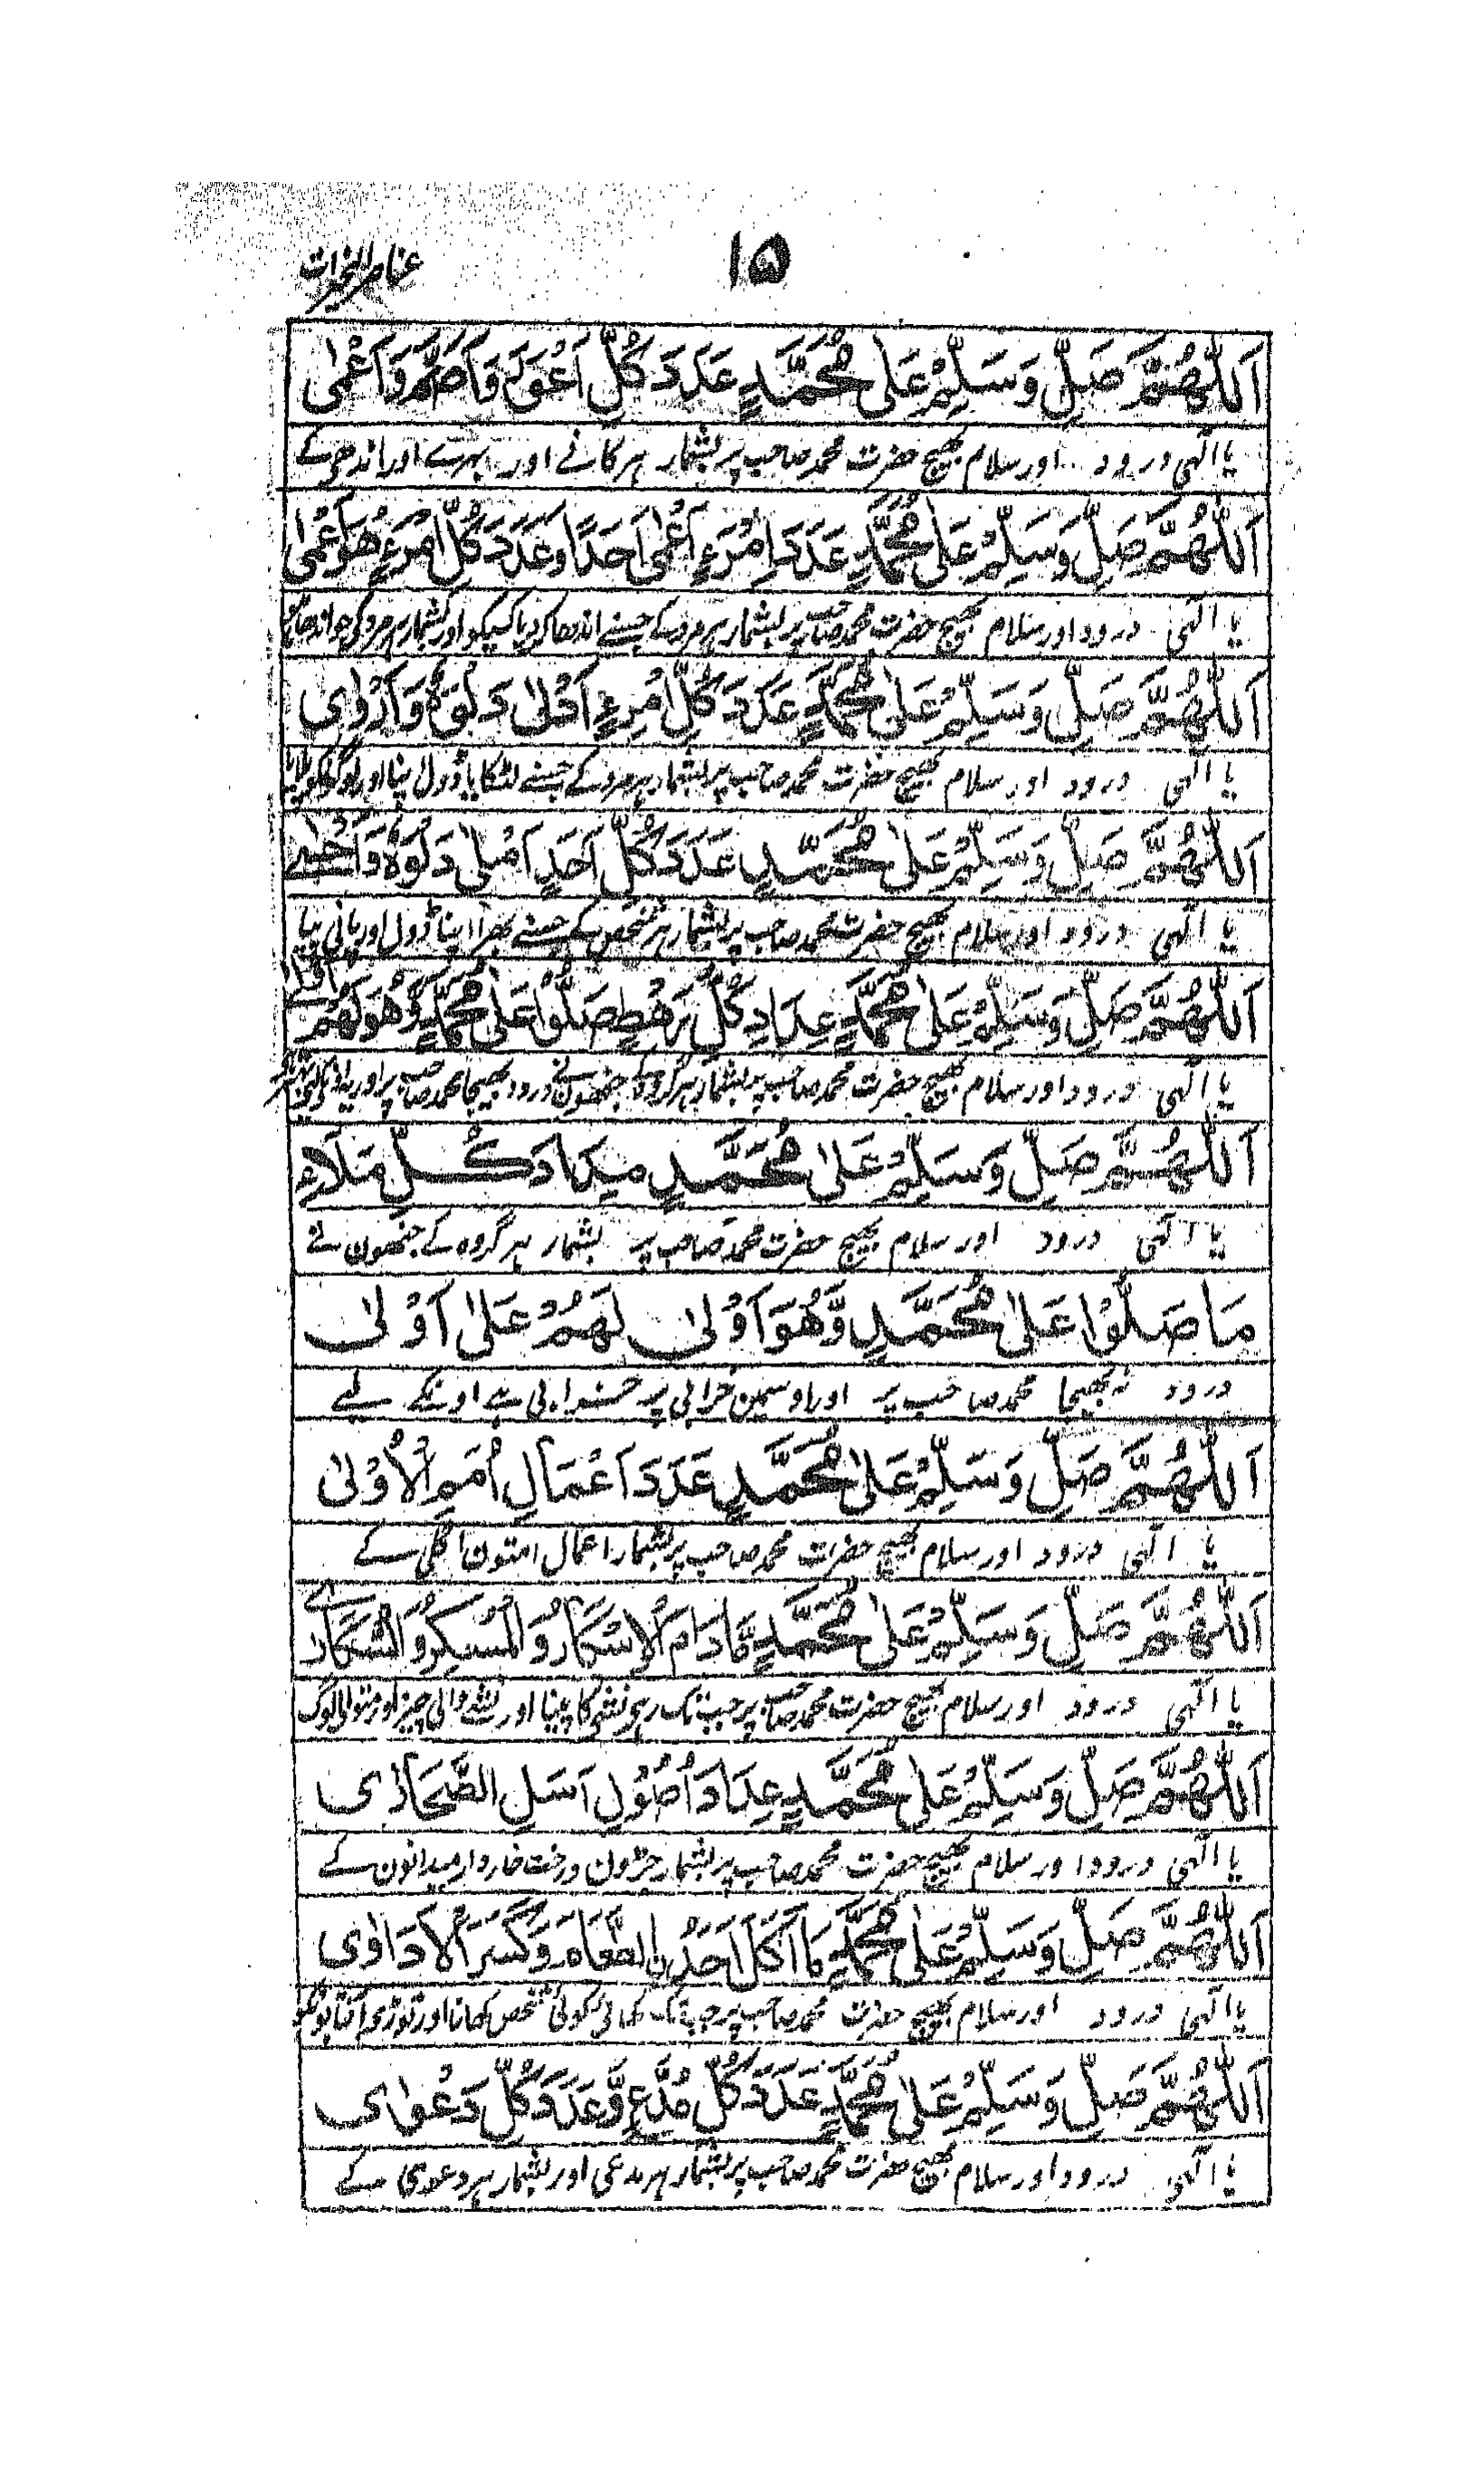 ۱۵
عناصر الخیرات
اَللّٰهُمَّ صَلِّ وَسَلِّمْ عَلٰی مُحَمَّدٍ عَدَدَ كُلِّ اَعْوَرَ وَاَصَمَّ وَاَعْمٰی
یا الٰہی درود اور سلام بھیج حضرت محمد صاحب پر بشمار ہر کانے اور بہرے اور اندھے کے
اَللّٰهُمَّ صَلِّ وَسَلِّمْ عَلٰی مُحَمَّدٍ عَدَدَ اِمْرَءٍ اَعْمٰی اَحَدًا وَعَدَدَ كُلِّ امْرَءٍ هُوَ اَعْمٰی
یا الٰہی درود اور سلام بھیج حضرت محمد صاحب پر بشمار ہر مرد کے جسنے اندھا کر دیا کسیکو اور بشمار ہر مرد کی جو اندھا
اَللّٰهُمَّ صَلِّ وَسَلِّمْ عَلٰی مُحَمَّدٍ عَدَدَ كُلِّ امْرِءٍ اَدْلٰی دَلْوَهٗ وَاَرْوٰی
یا الٰہی درود اور سلام بھیج حضرت محمد صاحب پر بشمار ہر مرد کے جسنے لٹکایا ڈول اپنا اور لوگونکو پلایا
اَللّٰهُمَّ صَلِّ وَسَلِّمْ عَلٰی مُحَمَّدٍ عَدَدَ كُلِّ اَحَدٍ اَمْلٰی دَلْوَهٗ
یا الٰہی درود اور سلام بھیج حضرت محمد صاحب پر بشمار ہر شخص کے جسنے بھرا اپنا ڈول اور پانی پیا
اَللّٰهُمَّ صَلِّ وَسَلِّمْ عَلٰی مُحَمَّدٍ عِدَادِ كُلِّ رَهْطٍ صَلَّوْا عَلٰی مُحَمَّدٍ وَّهُوَ لَهُمْ اَوْلٰی
یا الٰہی درود اور سلام بھیج حضرت محمد صاحب پر بشمار ہر گروہ کے جنھون نے درود بھیجا محمد صاحب پر اور یہ
اَللّٰهُمَّ صَلِّ وَسَلِّمْ عَلٰی مُحَمَّدٍ كُلِّ مَلَاءٍ
یا الٰہی درود اور سلام بھیج حضرت محمد صاحب پر بشمار ہر گروہ کے جنھون نے
مَا صَلَّوْا عَلٰی مُحَمَّدٍ وَّهُوَ اَوْلٰی لَهُمْ عَلٰی اَوْلٰی
درود نہ بھیجا محمد صاحب پر اور اوسمین خرابی پر خرابی ہے اونکے لیے
اَللّٰهُمَّ صَلِّ وَسَلِّمْ عَلٰی مُحَمَّدٍ عَدَدَ اَعْمَالِ اُمَمِ الْاُوْلٰی
یا الٰہی درود اور سلام بھیج حضرت محمد صاحب پر بشمار اعمال امتون اگلی کے
اَللّٰهُمَّ صَلِّ وَسَلِّمْ عَلٰی مُحَمَّدٍ مَّادَامَ الْاِسْكَارُ وَالْمُسْكِرُ وَالسُّكَارٰی
یا الٰہی درود اور سلام بھیج حضرت محمد صاحب پر جب تک رہے نشہ کا پینا اور نشے والی چیز اور متوالی لوگ
اَللّٰهُمَّ صَلِّ وَسَلِّمْ عَلٰی مُحَمَّدٍ عِدَادَ اُصُوْلِ اَسَلِ الصَّحَارٰی
یا الٰہی درود اور سلام بھیج حضرت محمد صاحب پر بشمار جڑون درخت خاردار میدانون کے
اَللّٰهُمَّ صَلِّ وَسَلِّمْ عَلٰی مُحَمَّدٍ مَّا اَكَلَ اَحَدُنِ الطَّعَامَ وَكَسَرَ الْاَدَاوٰی
یا الٰہی درود اور سلام بھیج حضرت محمد صاحب پر جب تک کھائے کوئی شخص کھانا اور توڑے آفتابونکو
اَللّٰهُمَّ صَلِّ وَسَلِّمْ عَلٰی مُحَمَّدٍ عَدَدَ كُلِّ مُدَّعٍ وَّعَدَدَ كُلِّ دَعْوٰی
یا الٰہی درود اور سلام بھیج حضرت محمد صاحب پر بشمار ہر مدعی اور بشمار ہر دعوی کے